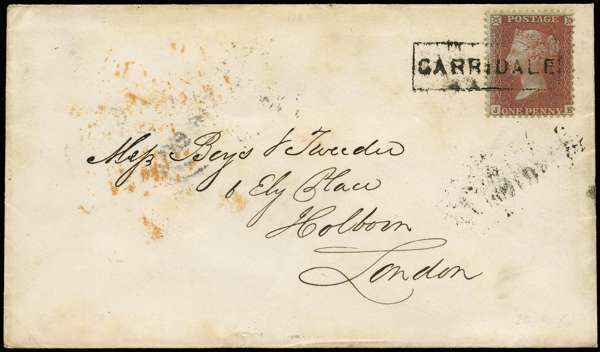 POSTAGE
CARRIDALE
J E
ONE PENNY
Messrs Boys & Tweedie
6 Ely Place
Holborn
London